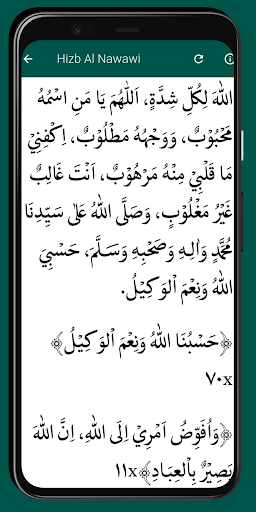 Hizb Al Nawawi
اللهَ لِكُلِّ شِدَّةٍ، اَللّٰهُمَّ يَا مَنِ اسْمُهُ
مَحْبُوْبٌ، وَوَجْهُهُ مَطْلُوْبٌ، اِكْفِنِيْ
مَا قَلْبِيْ مِنْهُ مَرْهُوْبٌ، اَنْتَ غَالِبٌ
غَيْرُ مَغْلُوْبٍ، وَصَلَّى اللهُ عَلٰى سَيِّدِنَا
مُحَمَّدٍ وَاٰلِهِ وَصَحْبِهِ وَسَلَّمَ، حَسْبِيَ
اللهُ وَنِعْمَ الْوَكِيْلُ.
﴿حَسْبُنَا اللهُ وَنِعْمَ الْوَكِيْلُ﴾
٧٠x
﴿وَاُفَوِّضُ اَمْرِيْ اِلَى اللهِ، اِنَّ اللهَ
بَصِيْرٌ بِالْعِبَادِ﴾١١x